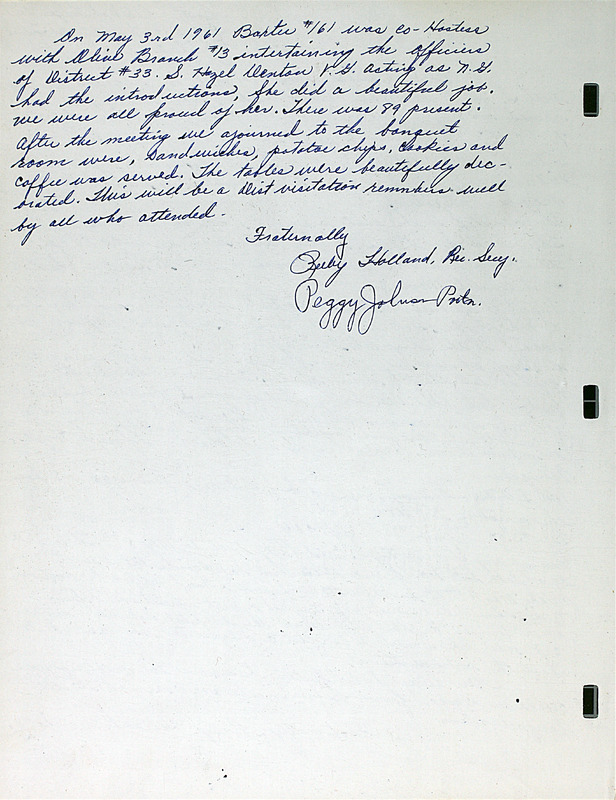 On May 3rd 1961 Bartee #161 was co-Hostess
with Olive Branch #13 intertaining the officiers
of District #33. S. Hazel Denton V.G. acting as N.G.
had the introductions, She did a beautiful job.
we were all proud of her. There was 89 present.
After the meeting we ajourned to the banquet
room were, Sandwiches, potatoe chips, cookies and
coffee was served. The tables were beautifully dec-
orated. This will be a Dist visitation remmbers well
by all who attended.
Fraternally
Ruby Holland, Rec. Secy.
Peggy Johnson